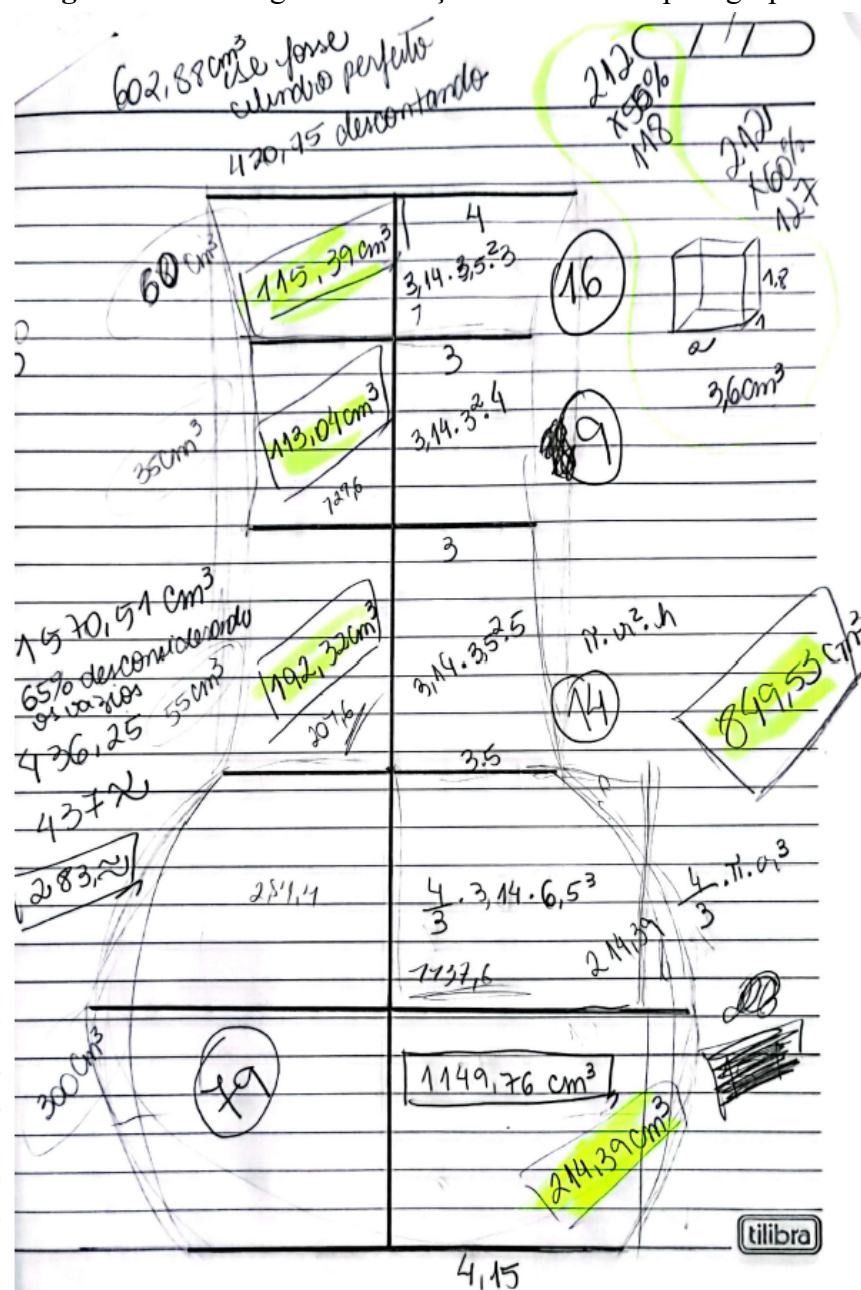 602,88 cm³ se fosse
cilindro perfeito
420,75 descontando
212
x55%
118
212
x60%
127
60 cm³
115,39 cm³
4
3,14 . 3,5² . 3
16
1,8
1
2
3,6cm³
3
35cm³
113,04 cm³
3,14 . 3² . 4
9
3
1570,51 cm³
65% desconsiderando
os vazios
436,25
437 ≈
283,≈
55cm³
192,32cm³
207,6
3,14 . 3,5² . 5
π . r² . h
14
849,53 cm³
3.5
4/3 . 3,14 . 6,5³
4/3 . π . r³
1137,6
214,39
300 cm³
79
1149,76 cm³
214,39 cm³
tilibra
4,15